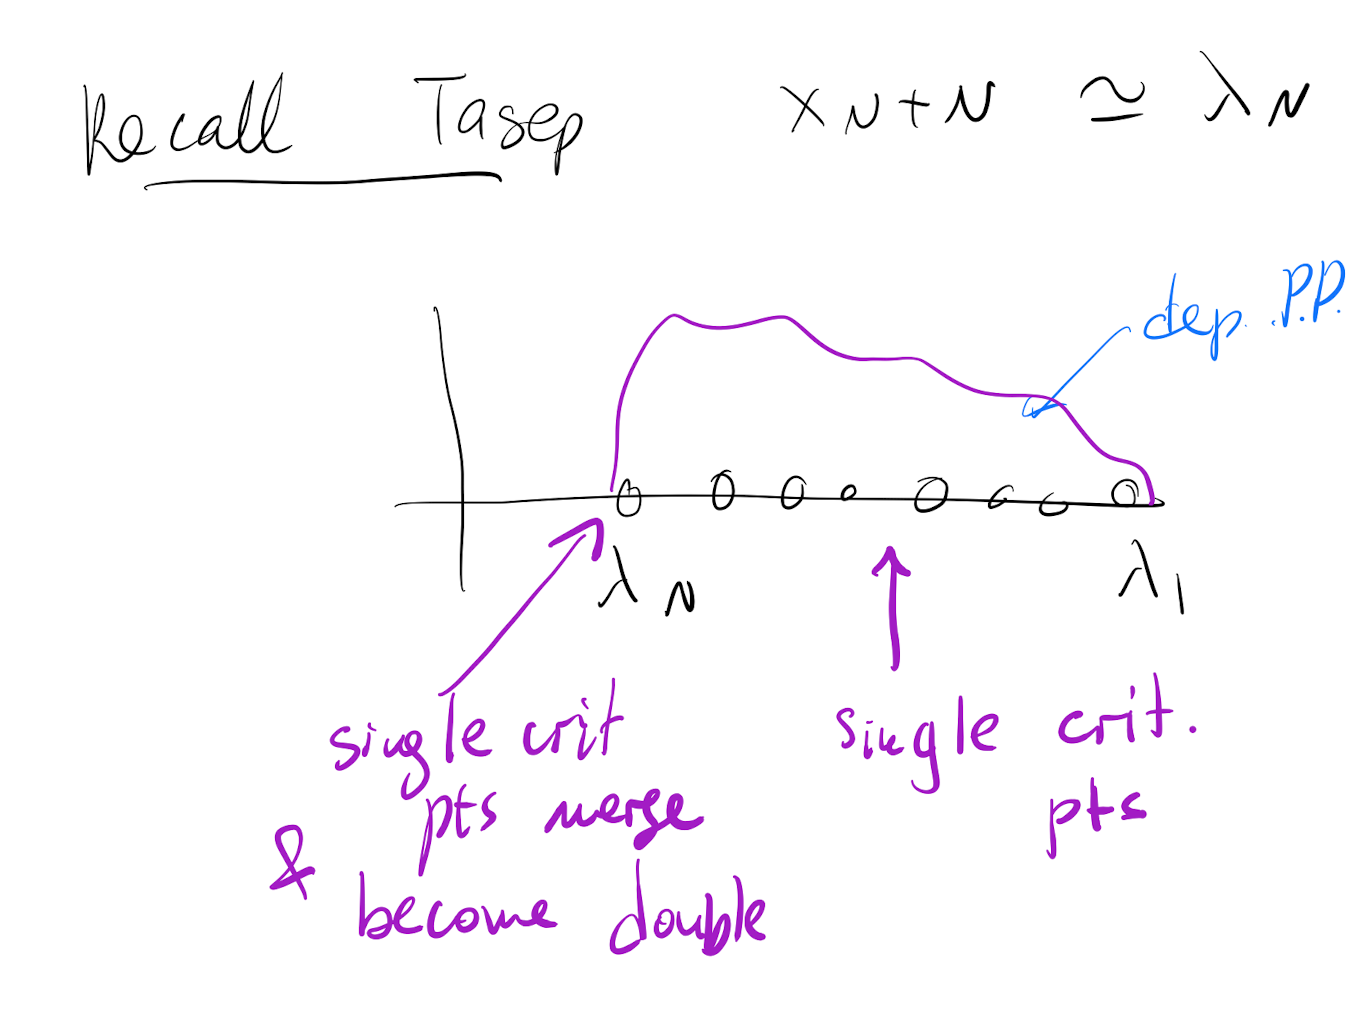 Recall Tasep x_N + N ≃ λ_N
dep. P.P.
λ_N λ_1
single crit
pts merge
& become double
single crit.
pts